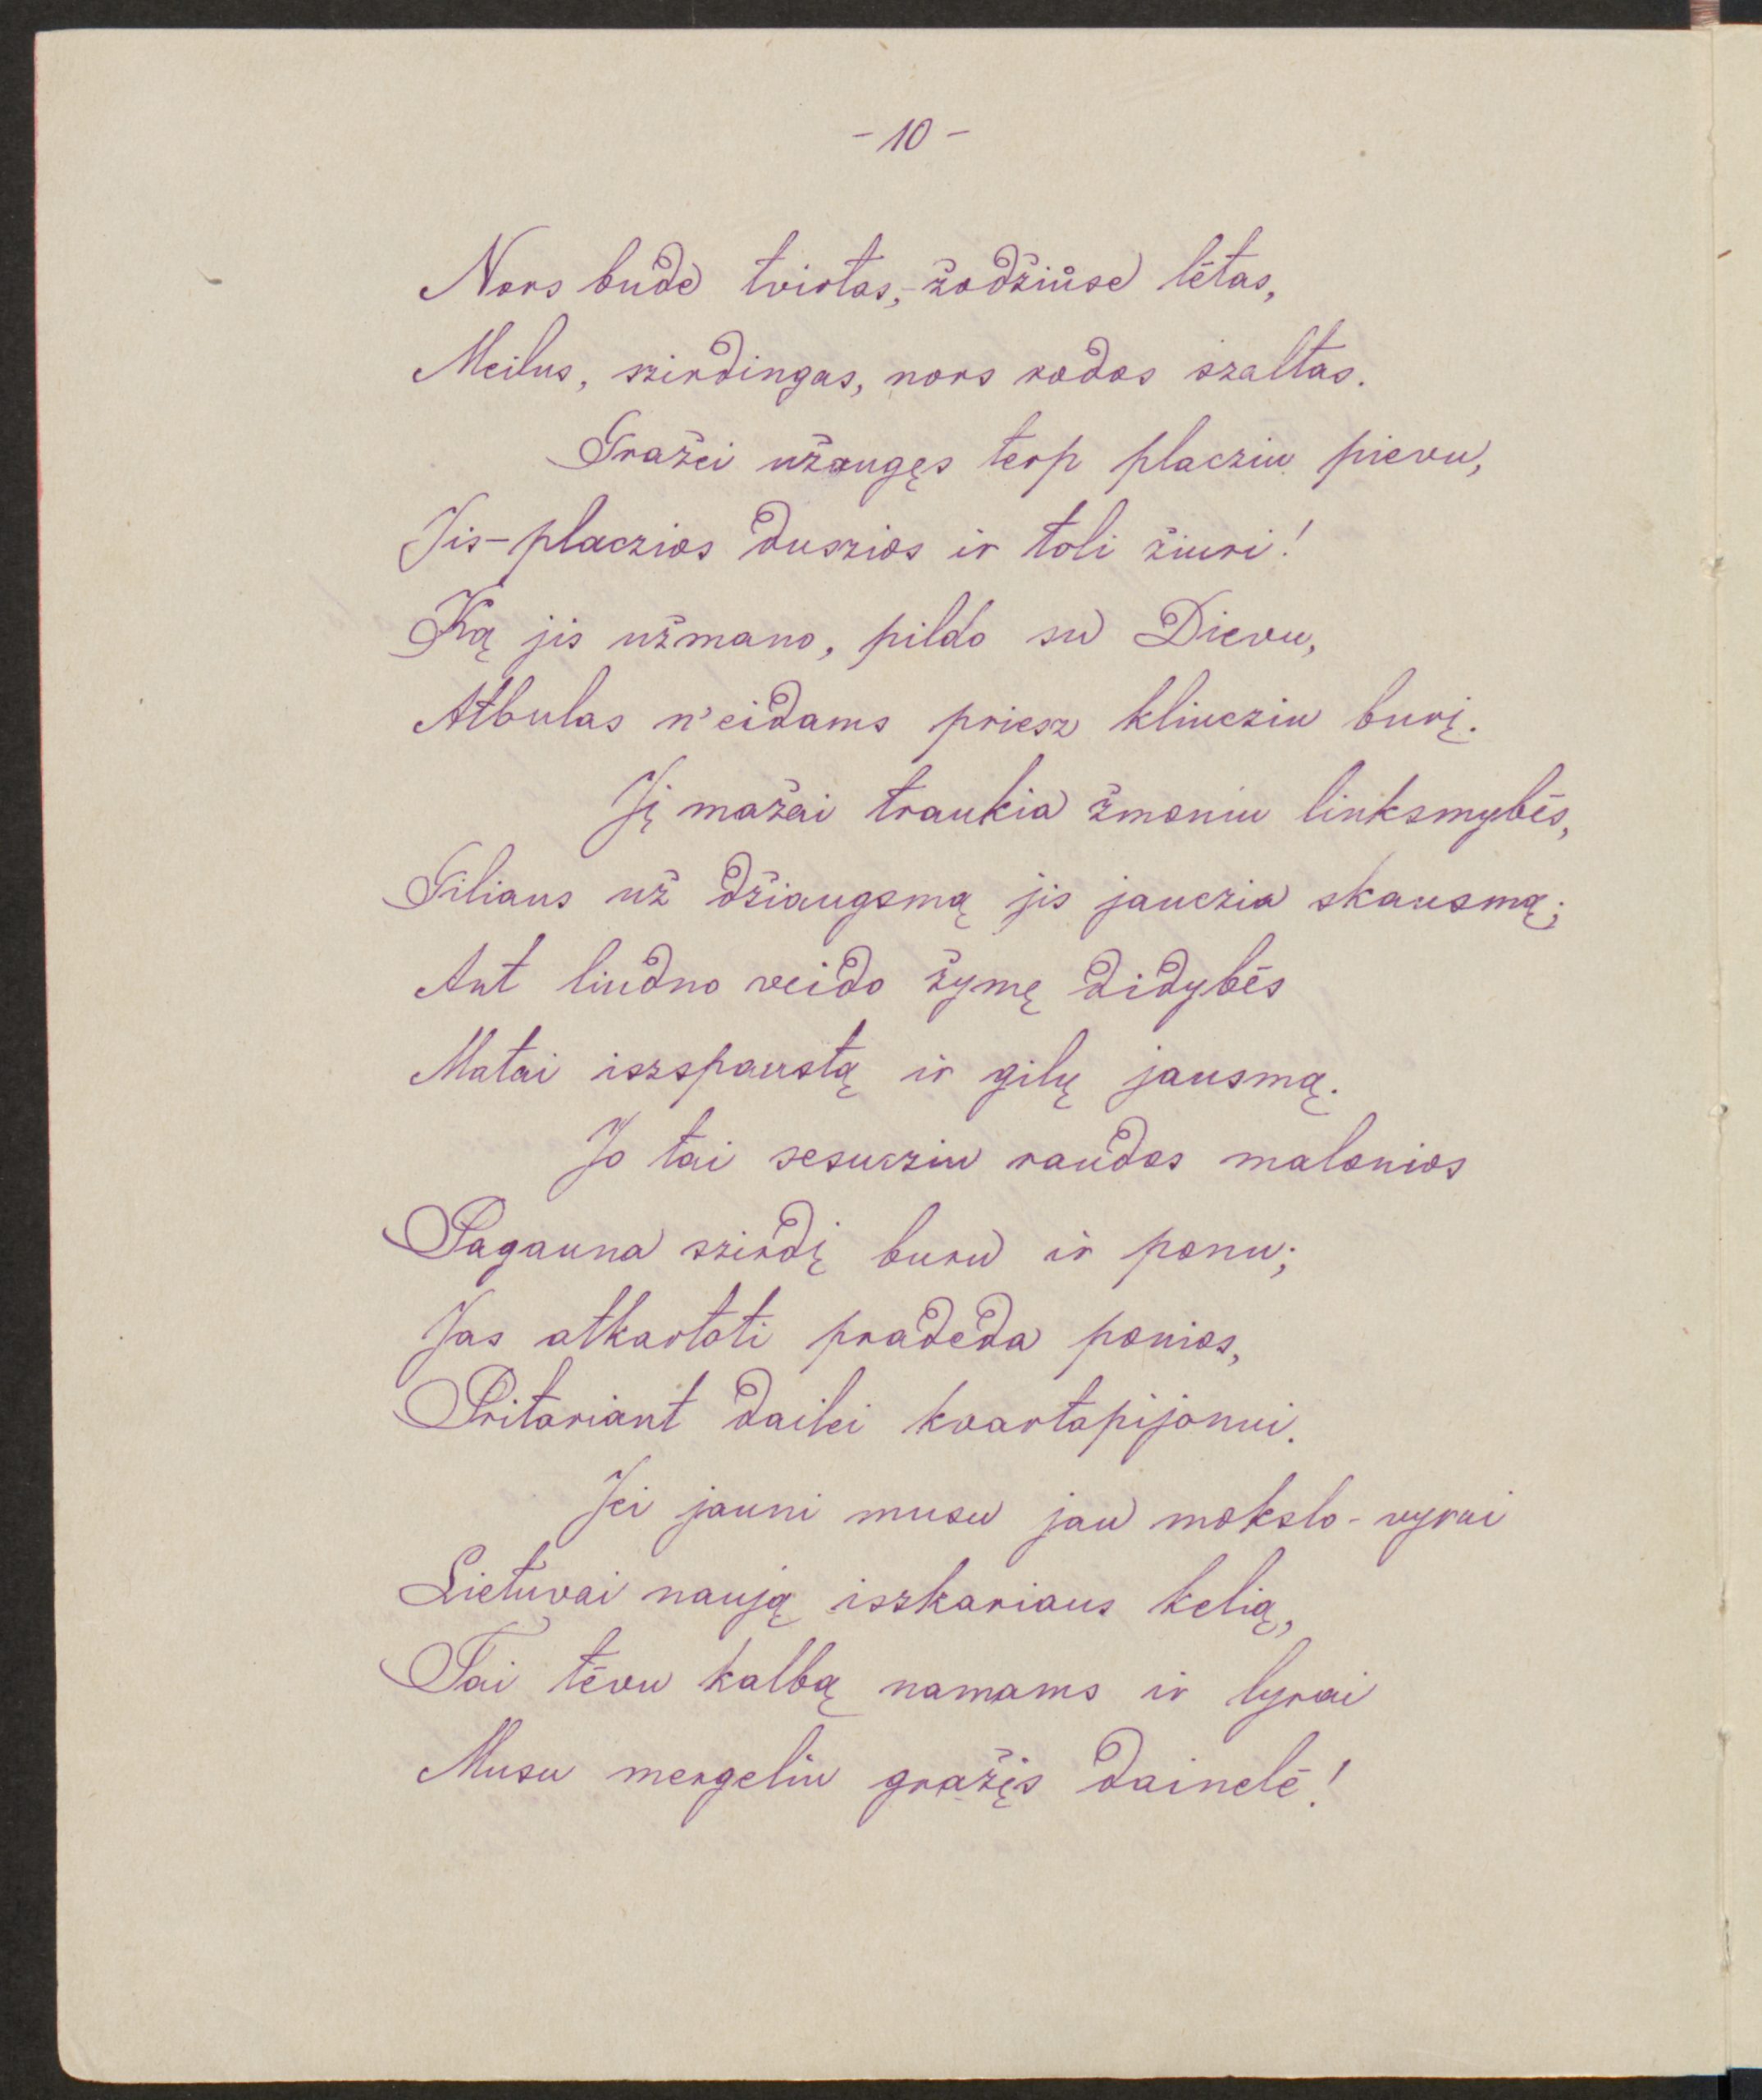 - 10 -
Nors bude tvirtas, - žodžiůse lētas,
Meilus, szirdingas, nors rodos szaltas.
Gražei užaugęs terp placziu pievu,
Jis - placzios duszios ir toli žiuri!
Ką jis užmano, pildo su Dievu,
Atbulas n'eidams priesz kliucziu burį.
Jį mažai traukia žmoniu linksmybēs,
Giliaus už džiaugsmą jis jauczia skausmą;
Ant liudno veido žymę didybēs
Matai iszspaustą ir gilų jausmą.
Jo tai sesucziu raudos malonios
Pagauna szirdį buru ir ponu;
Jas atkartoti pradeda ponios,
Pritariant dailei kvartapijonui.
Jei jauni musu jau mokslo - vyrai
Lietuvai naują iszkariaus kelią,
Tai tēvu kalbą namams ir lyrai
Musu mergeliu gražįs dainelē!